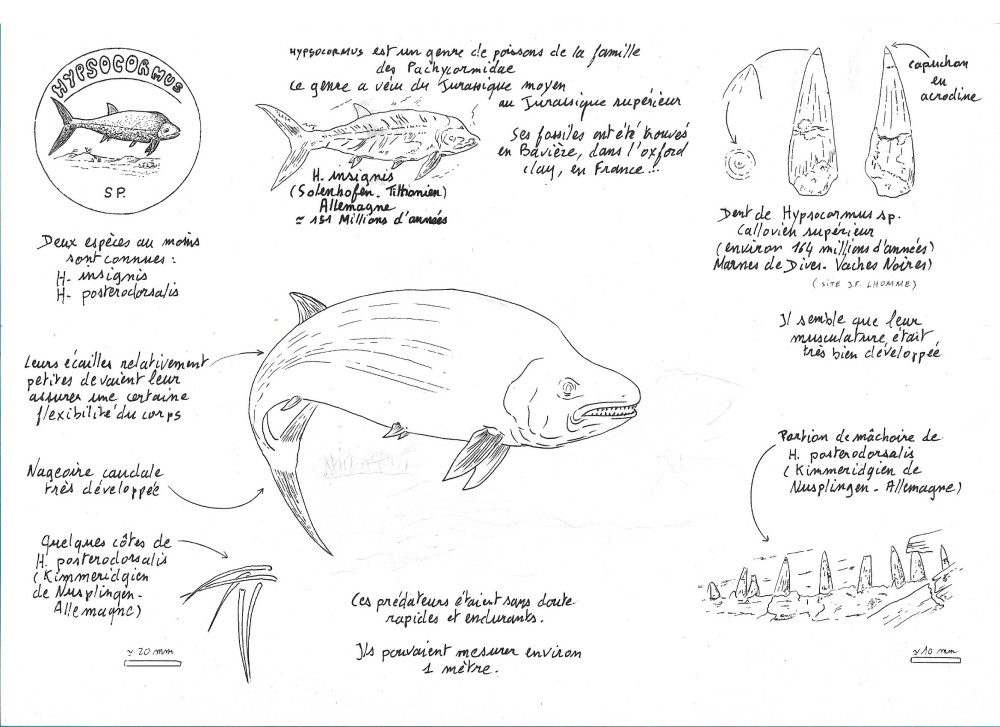 HYPSOCORMUS
SP.
HYPSOCORMUS est un genre de poissons de la famille
des Pachycormidae
Ce genre a vécu du Jurassique moyen
au Jurassique supérieur
Ses fossiles ont été trouvés
en Bavière, dans l'oxford
clay, en France...
H. insignis
(Solenhofen. Tithonien)
Allemagne
≃ 151 Millions d'années
capuchon
en
acrodine
Dent de Hypsocormus sp.
Callovien supérieur
(environ 164 millions d'années)
Marnes de Dives. Vaches Noires)
(SITE J.F. LHOMME)
Deux espèces au moins
sont connues :
H- insignis
H- posterodorsalis
Il semble que leur
musculature était
très bien développée
Leurs écailles relativement
petites devaient leur
assurer une certaine
flexibilité du corps
Nageoire caudale
très développée
Portion de mâchoire de
H. posterodorsalis
(Kimmeridgien de
Nusplingen - Allemagne)
Quelques côtes de
H. posterodorsalis
(Kimmeridgien
de Nusplingen-
Allemagne)
≃ 20 mm
Ces prédateurs étaient sans doute
rapides et endurants.
Ils pouvaient mesurer environ
1 mètre.
≃ 10 mm